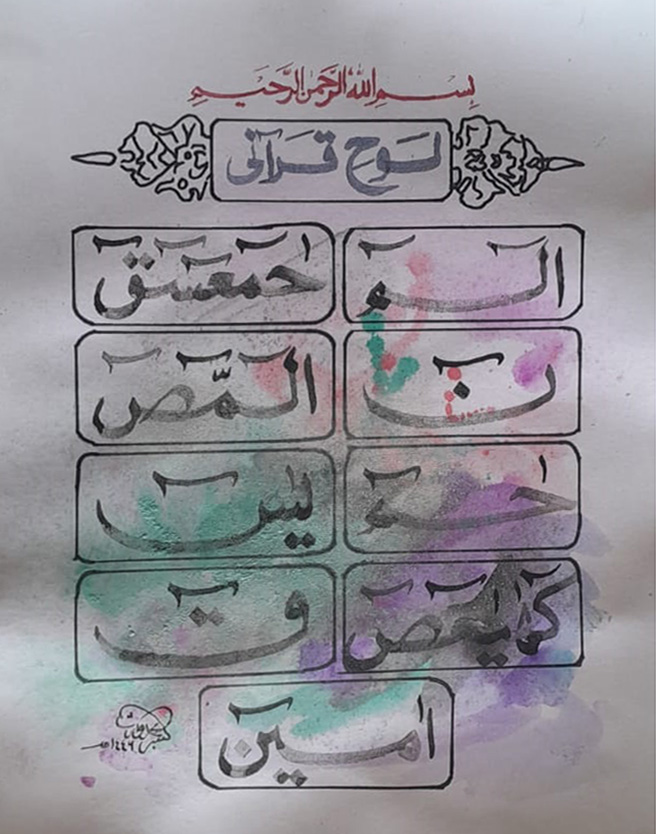 بسم الله الرحمن الرحيم
لوح قرآنی
الٓمٓ حٰمٓعٓسٓقٓ
نٓ الٓمّٓصٓ
حٰمٓ يٰسٓ
كٓهٰيٰعٓصٓ قٓ
اٰمين
١٤٤٦هـ